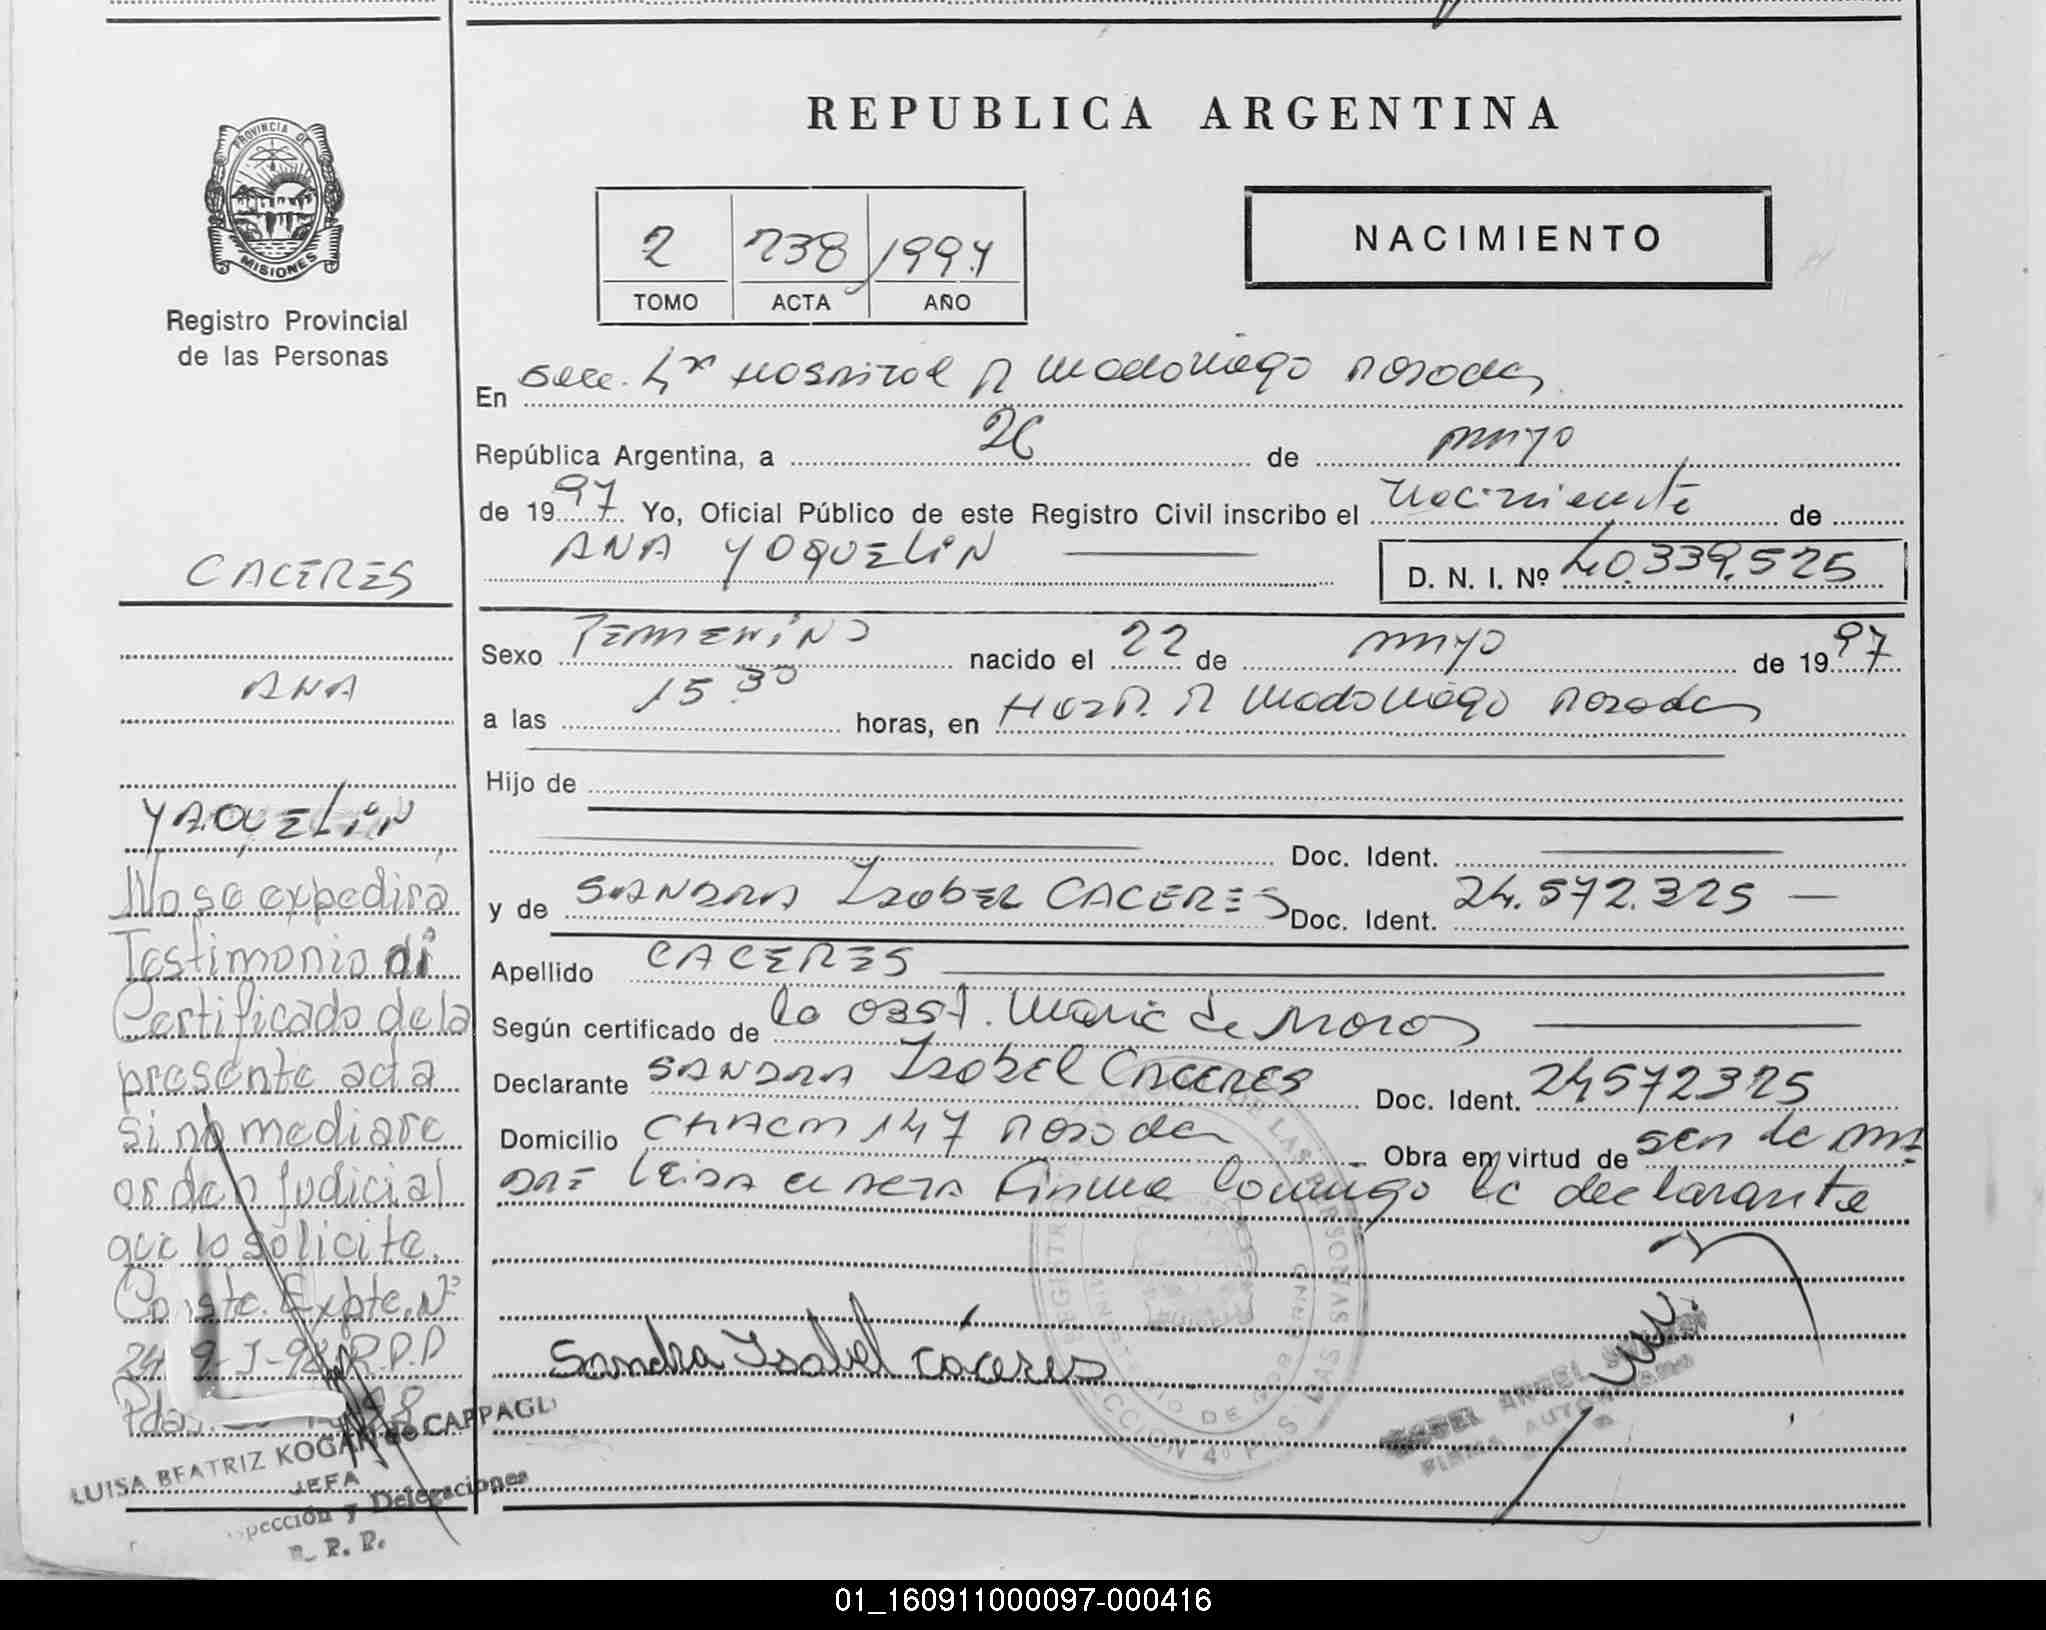 REPUBLICA ARGENTINA
PROVINCIA DE
MISIONES
Registro Provincial
de las Personas
2 738 1997
TOMO ACTA AÑO
NACIMIENTO
En Secc. 4ª Hospital R Madariaga Posadas
República Argentina, a 26 de mayo
de 1997 Yo, Oficial Público de este Registro Civil inscribo el nacimiento de
ANA YAQUELIN D. N. I. Nº 40.339.525
Sexo FEMENINO nacido el 22 de mayo de 1997
a las 15 30 horas, en Hosp. R Madariaga Posadas
Hijo de
Doc. Ident.
y de SANDRA Isabel CACERES Doc. Ident. 24.572.325 —
Apellido CACERES
Según certificado de la Obst. Maria de
Declarante SANDRA Isabel CACERES Doc. Ident. 24572325
Domicilio 147 Posadas Obra en virtud de ser la MA
DRE Leida el ACTA firma conmigo la declarante
Sandra Isabel cáceres
CACERES
ANA
YAQUELIN
No se expedirá
Testimonio ni
Certificado de la
presente acta
si no mediare
orden judicial
que lo solicite.
Conste. Expte. Nº
R.P.P
Pdas.
LUISA BEATRIZ KOGAN de CAPPAGLI
JEFA
Delegaciones
R. P. P.
FIRMA AUTORIZADA
01_160911000097-000416